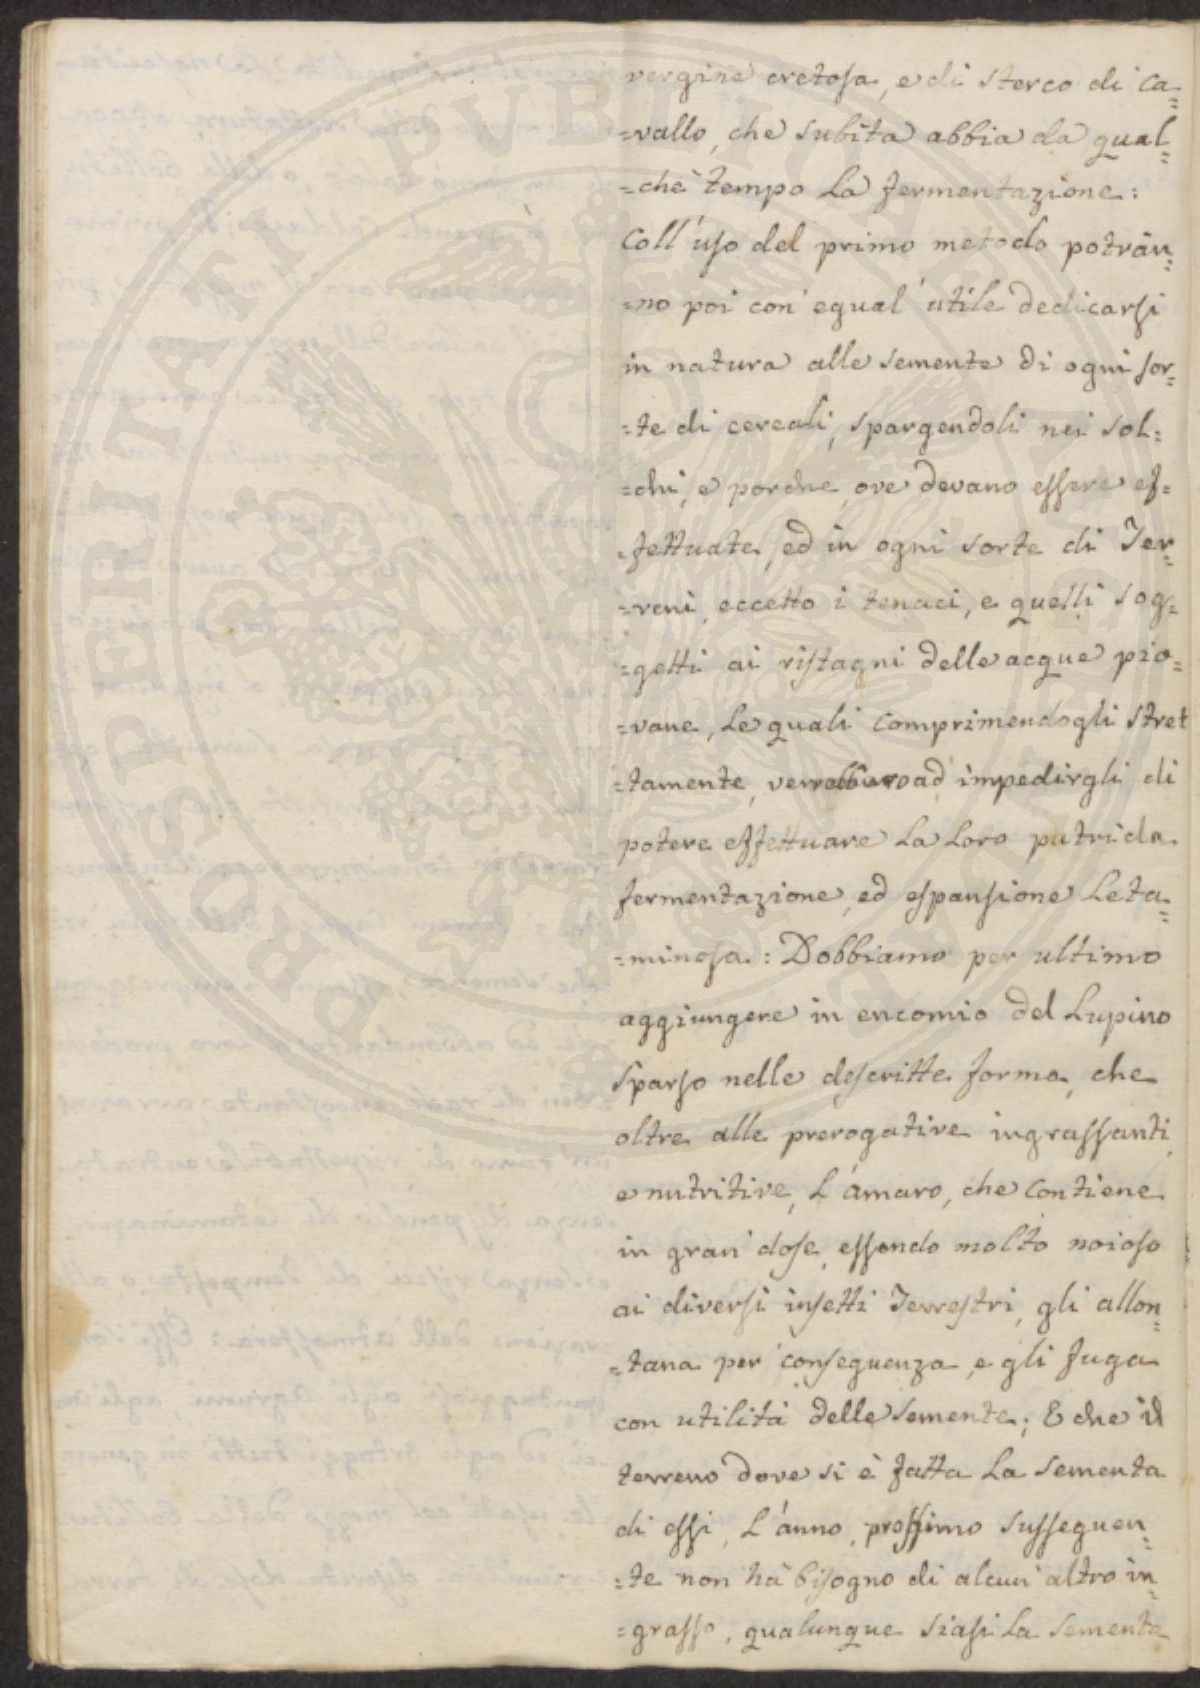 vergine cretosa, e di sterco di ca=
=vallo, che subita abbia da qual=
=che tempo La fermentazione:
Coll'uso del primo metodo potran=
=no poi con egual' utile dedicarsi
in natura alle semente di ogni sor=
=te di cereali, spargendoli nei sol=
=chi, e porche, ove devano essere ef=
=fettuate, ed in ogni sorte di Ter=
=reni, eccetto i tenaci, e quelli sog=
=getti ai ristagni delle acque pio=
=vane, Le quali comprimendogli stret
=tamente, verrebbero ad impedirgli di
potere effettuare La Loro putrida
fermentazione, ed espansione Leta=
=minosa: Dobbiamo per ultimo
aggiungere in encomio del Lupino
sparso nelle descritte forme, che
oltre alle prerogative ingrassanti,
e nutritive, L'amaro, che contiene
in gran' dose, essendo molto noioso
ai diversi insetti Terrestri, gli allon=
=tana per conseguenza, e gli fuga
con utilità delle semente; E che il
terreno dove si è fatta La sementa
di essi, L'anno, prossimo susseguen=
=te non hà bisogno di alcun' altro in=
=grasso, qualunque siasi La sementa
PROSPERITATI PUBLICAE